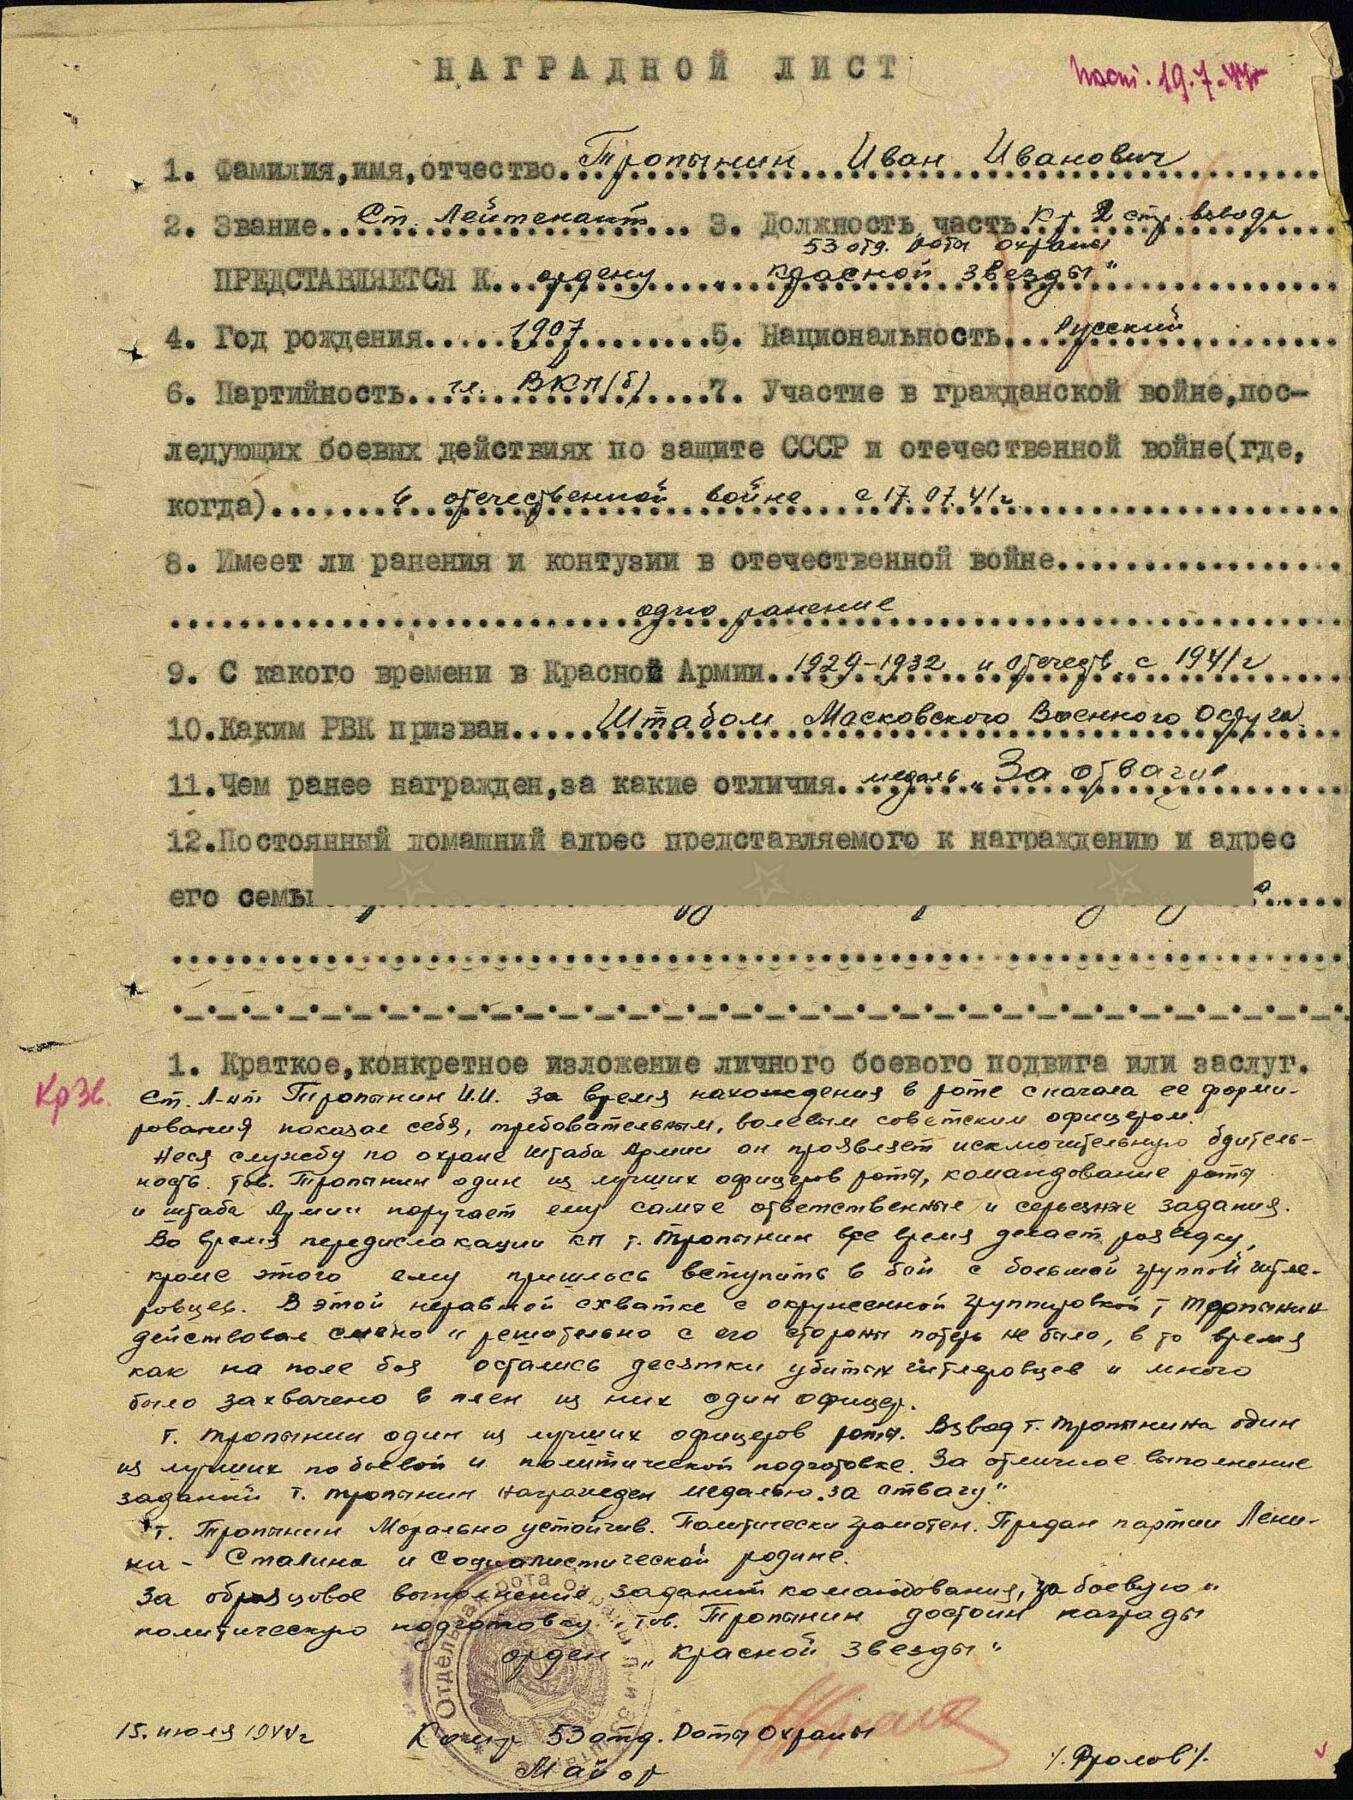 НАГРАДНОЙ ЛИСТ
19.7.44г
1. Фамилия,имя,отчество. Тропынин Иван Иванович
2. Звание. Ст. Лейтенант 3. Должность часть. К-р 2 стр. взвода
53 отд. Роты охраны
ПРЕДСТАВЛЯЕТСЯ К. ордену „красной звезды"
4. Год рождения. 1907 5. Национальность. Русский
6. Партийность. чл. ВКП(б) 7. Участие в гражданской войне,пос-
ледующих боевых действиях по защите СССР и отечественной войне(где,
когда). в отечественной войне с 17.07.41г
8. Имеет ли ранения и контузии в отечественной войне.
одно ранение
9. С какого времени в Красной Армии. 1929-1932 и отечеств с 1941г
10.Каким РВК призван. Штабом Московского Военного Округа.
11.Чем ранее награжден,за какие отличия. медаль „За отвагу"
12.Постоянный домашний адрес представляемого к награждению и адрес
его семьи
1. Краткое,конкретное изложение личного боевого подвига или заслуг.
Кр Зв.
Ст. Л-нт Тропынин И.И. За время нахождения в роте с начала ее форми-
рования показал себя, требовательным, волевым советским офицером.
Неся службу по охране штаба Армии он проявляет исключительную бдитель-
ность. тов. Тропынин один из лучших офицеров роты, командование роты
и штаба Армии поручает ему самые ответственные и серьезные задания.
Во время передислокации КП т. Тропынин все время делает разведку,
кроме этого ему пришлось вступить в бой с большой группой гитле-
ровцев. В этой неравной схватке с окруженной группировкой т Тропынин
действовал смело и решительно с его стороны потерь не было, в то время
как на поле боя остались десятки убитых гитлеровцев и много
было захвачено в плен из них один офицер.
т. Тропынин один из лучших офицеров роты. Взвод т. Тропынина один
из лучших по боевой и политической подготовке. За отличное выполнение
заданий т. Тропынин награжден медалью „за отвагу"
т. Тропынин Морально устойчив. Политически грамотен. Предан партии Лени-
на - Сталина и Социалистической родине.
За образцовое выполнение заданий командования, за боевую и
политическую подготовку, тов. Тропынин достоин награды
орден „красной звезды"
15. июля 1944г Кома-р 53 отд. Роты Охраны
Майор /.Фролов/.